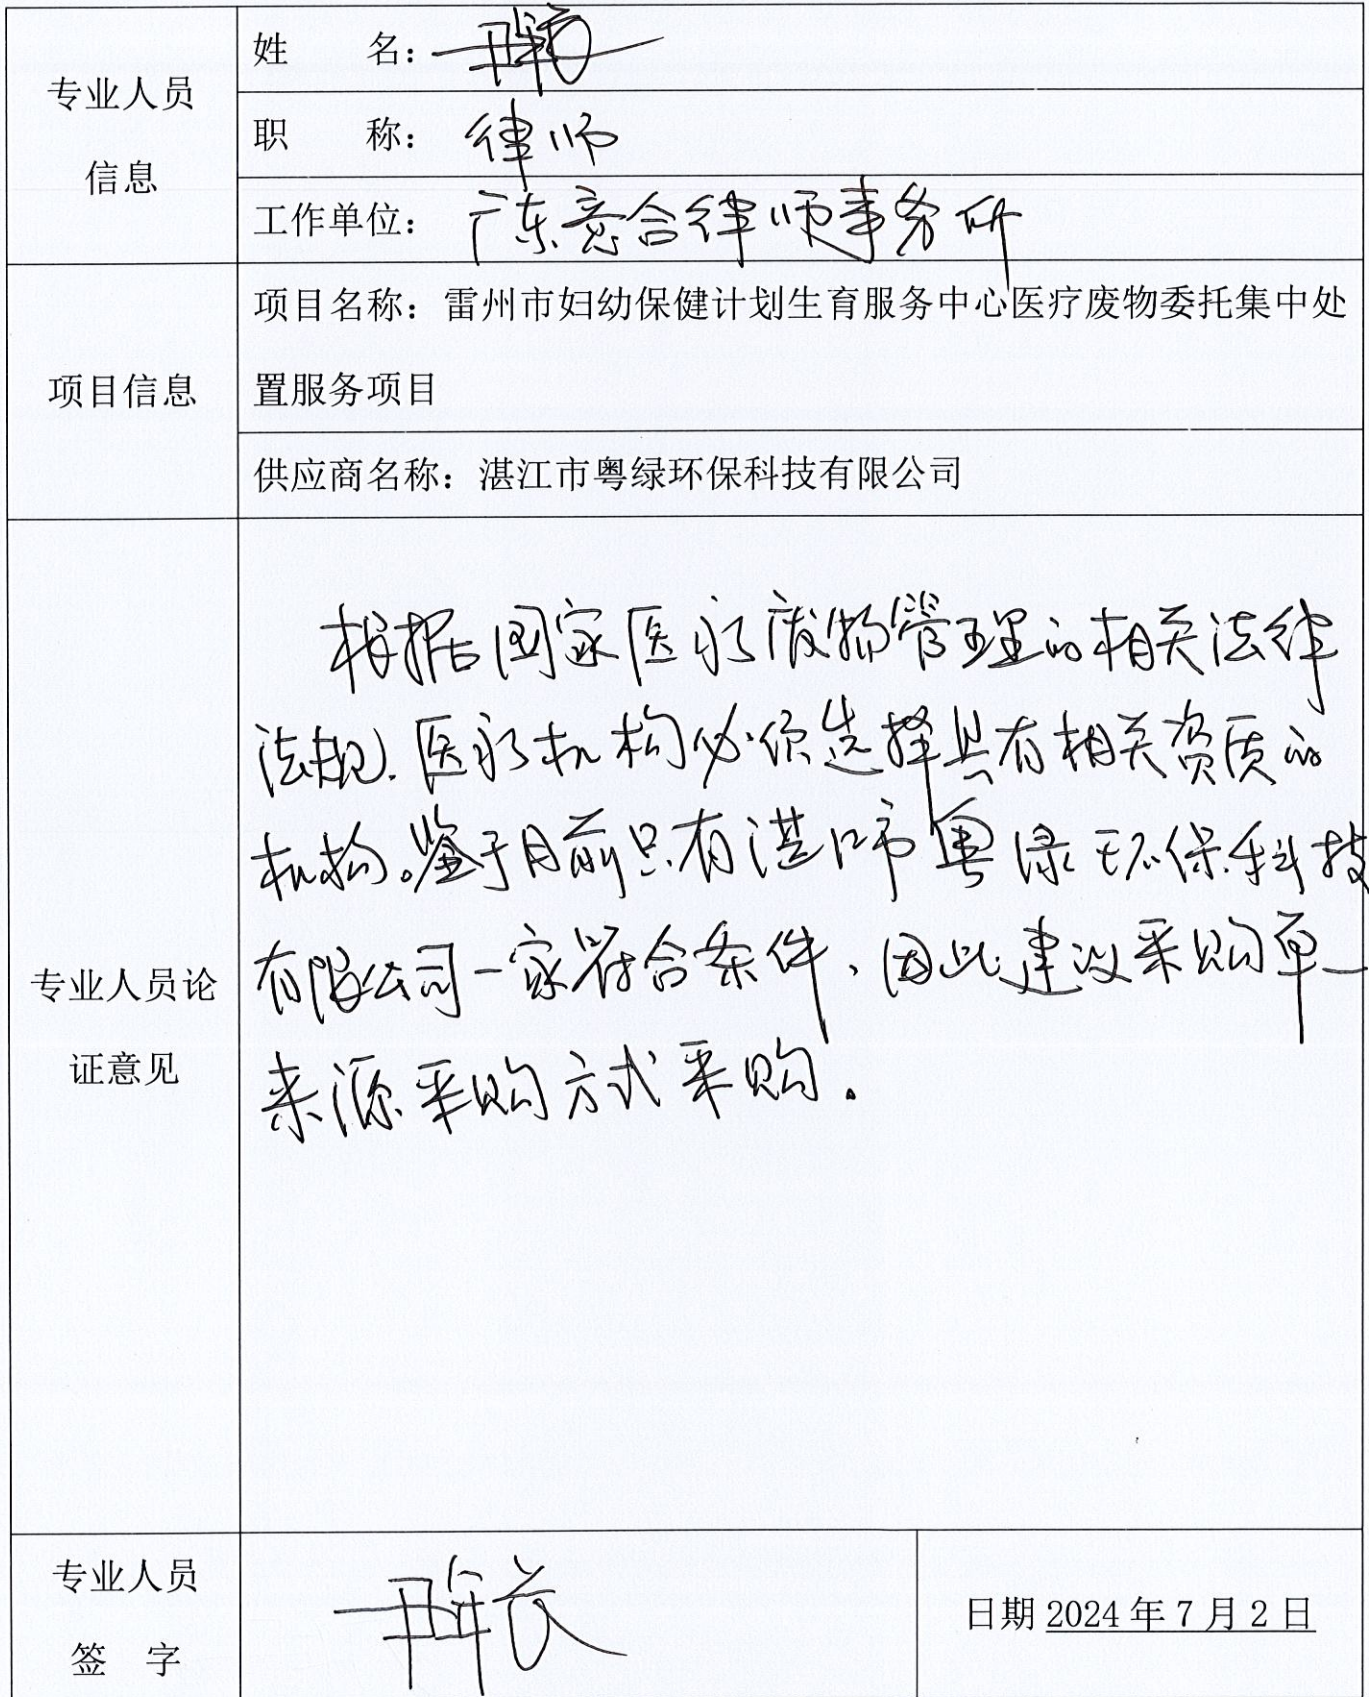 专业人员
信息
姓 名：
职 称： 律师
工作单位： 广东亮合律师事务所
项目信息
项目名称：雷州市妇幼保健计划生育服务中心医疗废物委托集中处
置服务项目
供应商名称：湛江市粤绿环保科技有限公司
专业人员论
证意见
根据国家医疗废物管理的相关法律
法规，医疗机构必须选择具有相关资质的
机构。鉴于目前只有湛江市粤绿环保科技
有限公司一家符合条件，因此建议采购单一
来源采购方式采购。
专业人员
签 字
日期 2024 年 7 月 2 日